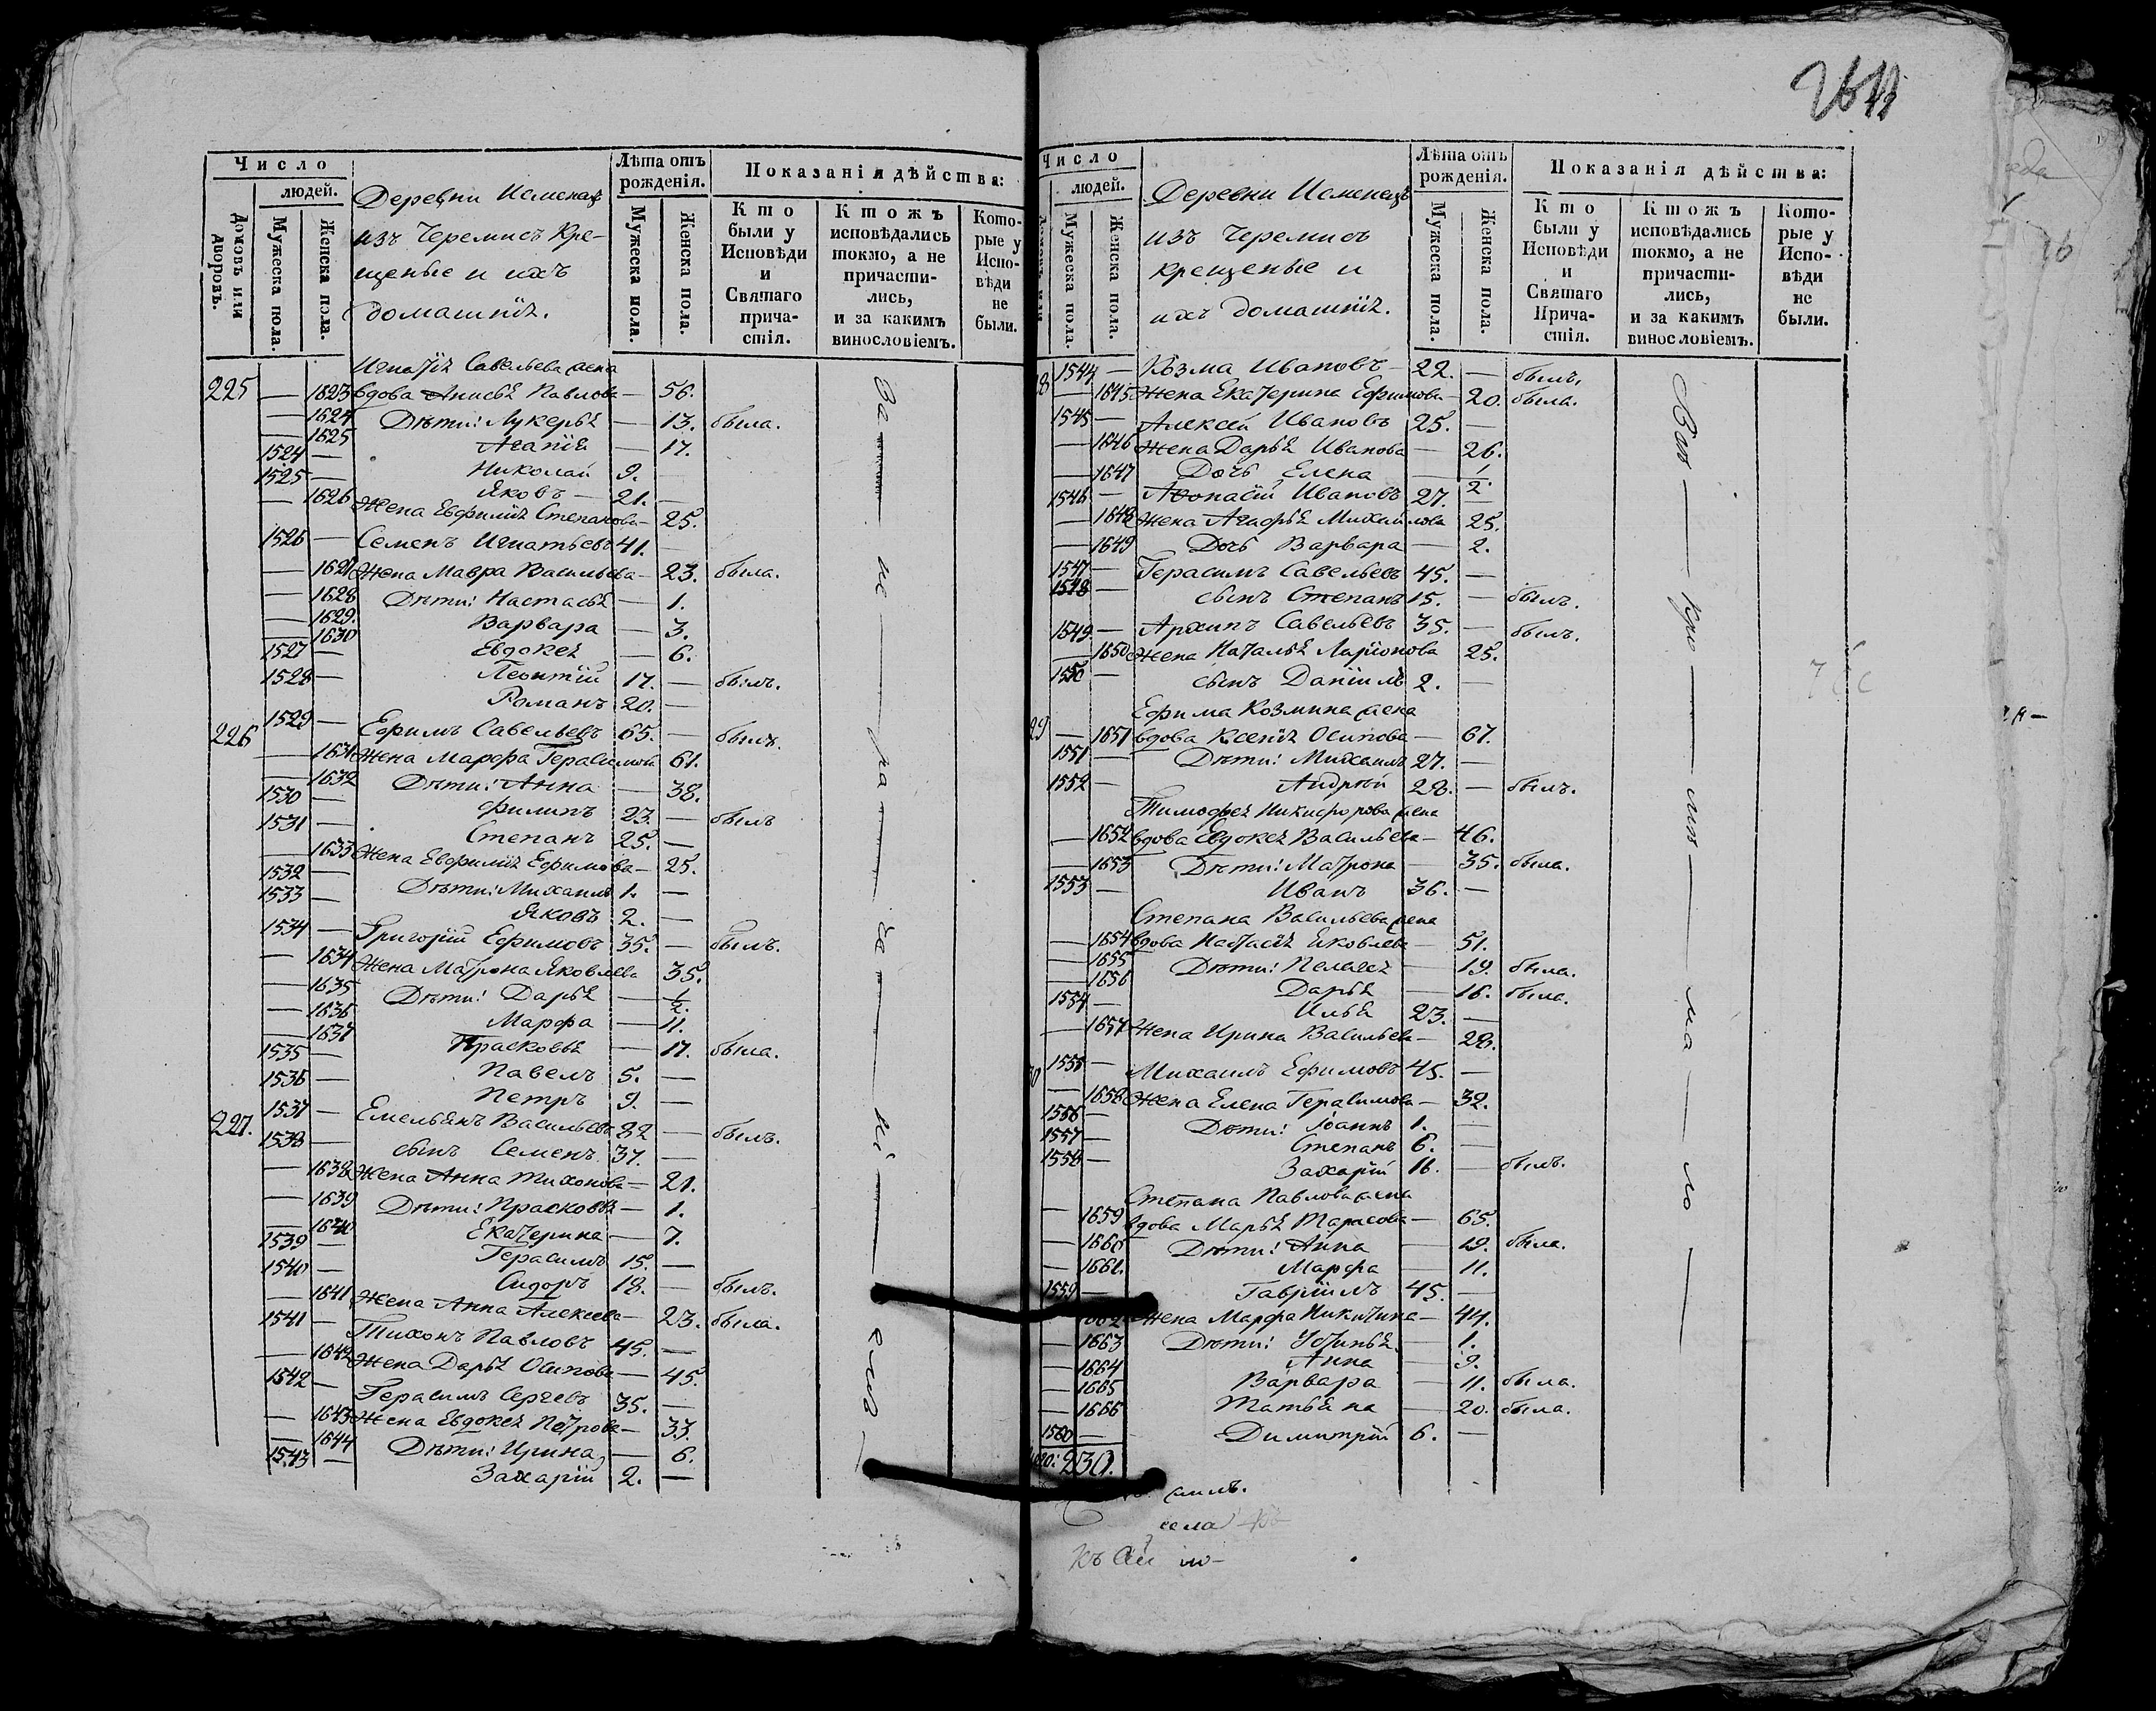 Число
людей.
Домовъ или дворовъ.
Мужеска пола.
Женска пола.
Деревни
изъ Черемисъ Кре-
щеные и ихъ
домашнiе.
Лѣта отъ рожденія.
Мужеска пола.
Женска пола.
Показанія дѣйства:
Кто были у Исповѣди и Святаго прича-стія.
Ктожъ исповѣдались токмо, а не причасти-лись, и за какимъ винословіемъ.
Кото-рые у Испо-вѣди не были.
Игнатія Савельева жена
225 — 1623 вдова Анисья Павлова — 56.
— 1624 Дѣти: Лукерья — 13. была.
— 1625 Агапія — 17.
1524 — Николай 9.
1525 — Яковъ — 21. —
— 1626 Жена Евфимія Степанова — 25.
1526 — Семенъ Игнатьевъ 41. —
— 1627 Жена Мавра Васильева — 23. была.
— 1628 Дѣти: Настасья — 1.
— 1629. Варвара — 3.
— 1630 Евдокея — 6.
1527 — Леонтій 17. — былъ.
1528 — Романъ 20. —
226 1529 — Ефимъ Савельевъ 65. — былъ.
— 1631 Жена Марфа 61.
— 1632 Дѣти: Анна — 38.
1530 — Филипъ 23. — былъ
1531 — Степанъ 25. —
— 1633 Жена Евфимія Ефимова — 25.
1532 — Дѣти: Михаилъ 1. —
1533 — Яковъ 2. —
1534 — Григорій Ефимовъ 35. — былъ.
— 1634 Жена Матрона Яковлева 35.
— 1635 Дѣти: Дарья — 1/2.
— 1636 Марфа — 11.
— 1637 Прасковья — 17. была.
1535 — Павелъ 5. —
1536 — Петръ 9. —
227. 1537 — Емельянъ Васильевъ 82 — былъ.
1538 — сынъ Семенъ 37. —
— 1638 Жена Анна Тихонова — 21.
— 1639 Дѣти: Прасковья — 1.
— 1640 Екатерина — 7.
1539 — Герасимъ 15. —
1540 — Сидоръ 18. — былъ.
— 1641 Жена Анна Алексеева — 23. была.
1541 — Тихонъ Павловъ 45. —
— 1642 Жена Дарья Осипова — 45.
1542 — Герасимъ Сергеевъ 35. —
— 1643 Жена Евдокея Петрова — 33.
— 1644 Дѣти: Ирина — 6.
1543 — Захарій 2. —
Число
людей.
Мужеска пола.
Женска пола.
Деревни
изъ Черемисъ
крещеные и
ихъ домашнiе.
Лѣта отъ рожденія.
Мужеска пола.
Женска пола.
Показанія дѣйства:
Кто были у Исповѣди и Святаго Прича-стія.
Ктожъ исповѣдались токмо, а не причасти-лись, и за какимъ винословіемъ.
Кото-рые у Испо-вѣди не были.
8 1544 — Козма Ивановъ — 22. — былъ.
— 1645 Жена Екатерина Ефимова — 20. была.
1545 — Алексей Ивановъ 25. —
— 1646 Жена Дарья Иванова — 26.
— 1647 Дочь Елена — 1/2.
1546 — Афонасій Ивановъ 27. —
— 1648 Жена Агафья Михайлова 25.
— 1649 Дочь Варвара — 2.
1547 — Герасимъ Савельевъ 45. —
1548 — сынъ Степанъ 15. — былъ.
1549 — Архипъ Савельевъ 35. — былъ.
— 1650 Жена Наталья Ларіонова 25.
1550 — сынъ Даніилъ 2. —
Ефима Козмина жена
29 — 1651 вдова Ксенія Осипова — 67.
1551 — Дѣти: Михаилъ 27. —
1552 — Андрей 28. — былъ.
Тимофея Никифорова жена
— 1652 вдова Евдокея Васильева — 46.
— 1653 Дѣти: Матрона — 35. была.
1553 — Иванъ 36. —
Степана Васильева жена
— 1654 вдова Настасія Яковлева — 51.
— 1655 Дѣти: Пелагея — 19. была.
— 1656 Дарья — 16. была.
1554 — Илья 23. —
— 1657 Жена Ирина Васильева — 28.
1555 — Михаилъ Ефимовъ 45. —
— 1658 Жена Елена Герасимова — 32.
1556 — Дѣти: Іоаннъ 1. —
1557 — Степанъ 6. —
1558 — Захарій 16. — былъ.
Степана Павлова жена
— 1659 вдова Марья Тарасова — 65.
— 1660 Дѣти: Анна — 19. была.
— 1661. Марфа — 11.
1559 — Гавріилъ 45. —
Жена Марфа Никитина — 44.
— 1663 Дѣти: Устинья — 1.
— 1664 Анна — 9.
— 1665 Варвара — 11. была.
— 1666 Татьяна — 20. была.
1560 — Димитрій 6. —
230.